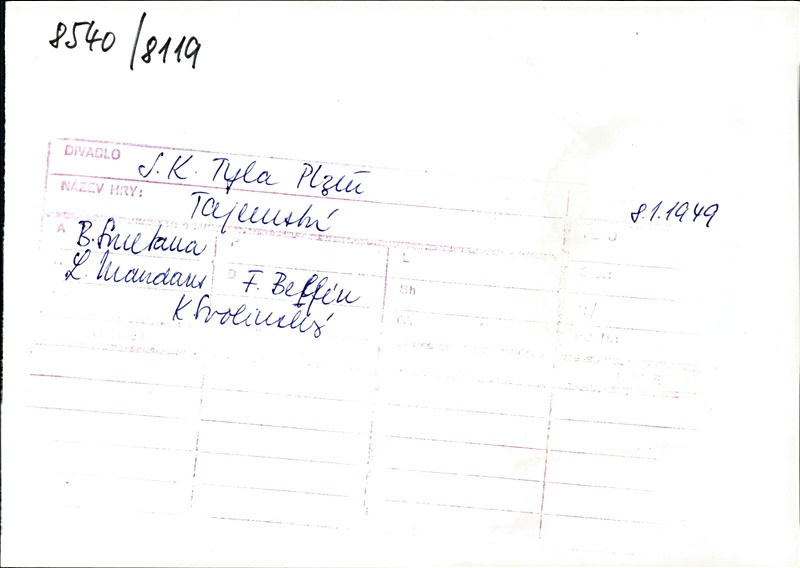 8540/8119
DIVADLO J. K. Tyla Plzeň
NÁZEV HRY: Tajemství
8.1.1949
A B. Smetana
L. Mandaus
D F. Belfín
K Svolinský
L
Sh